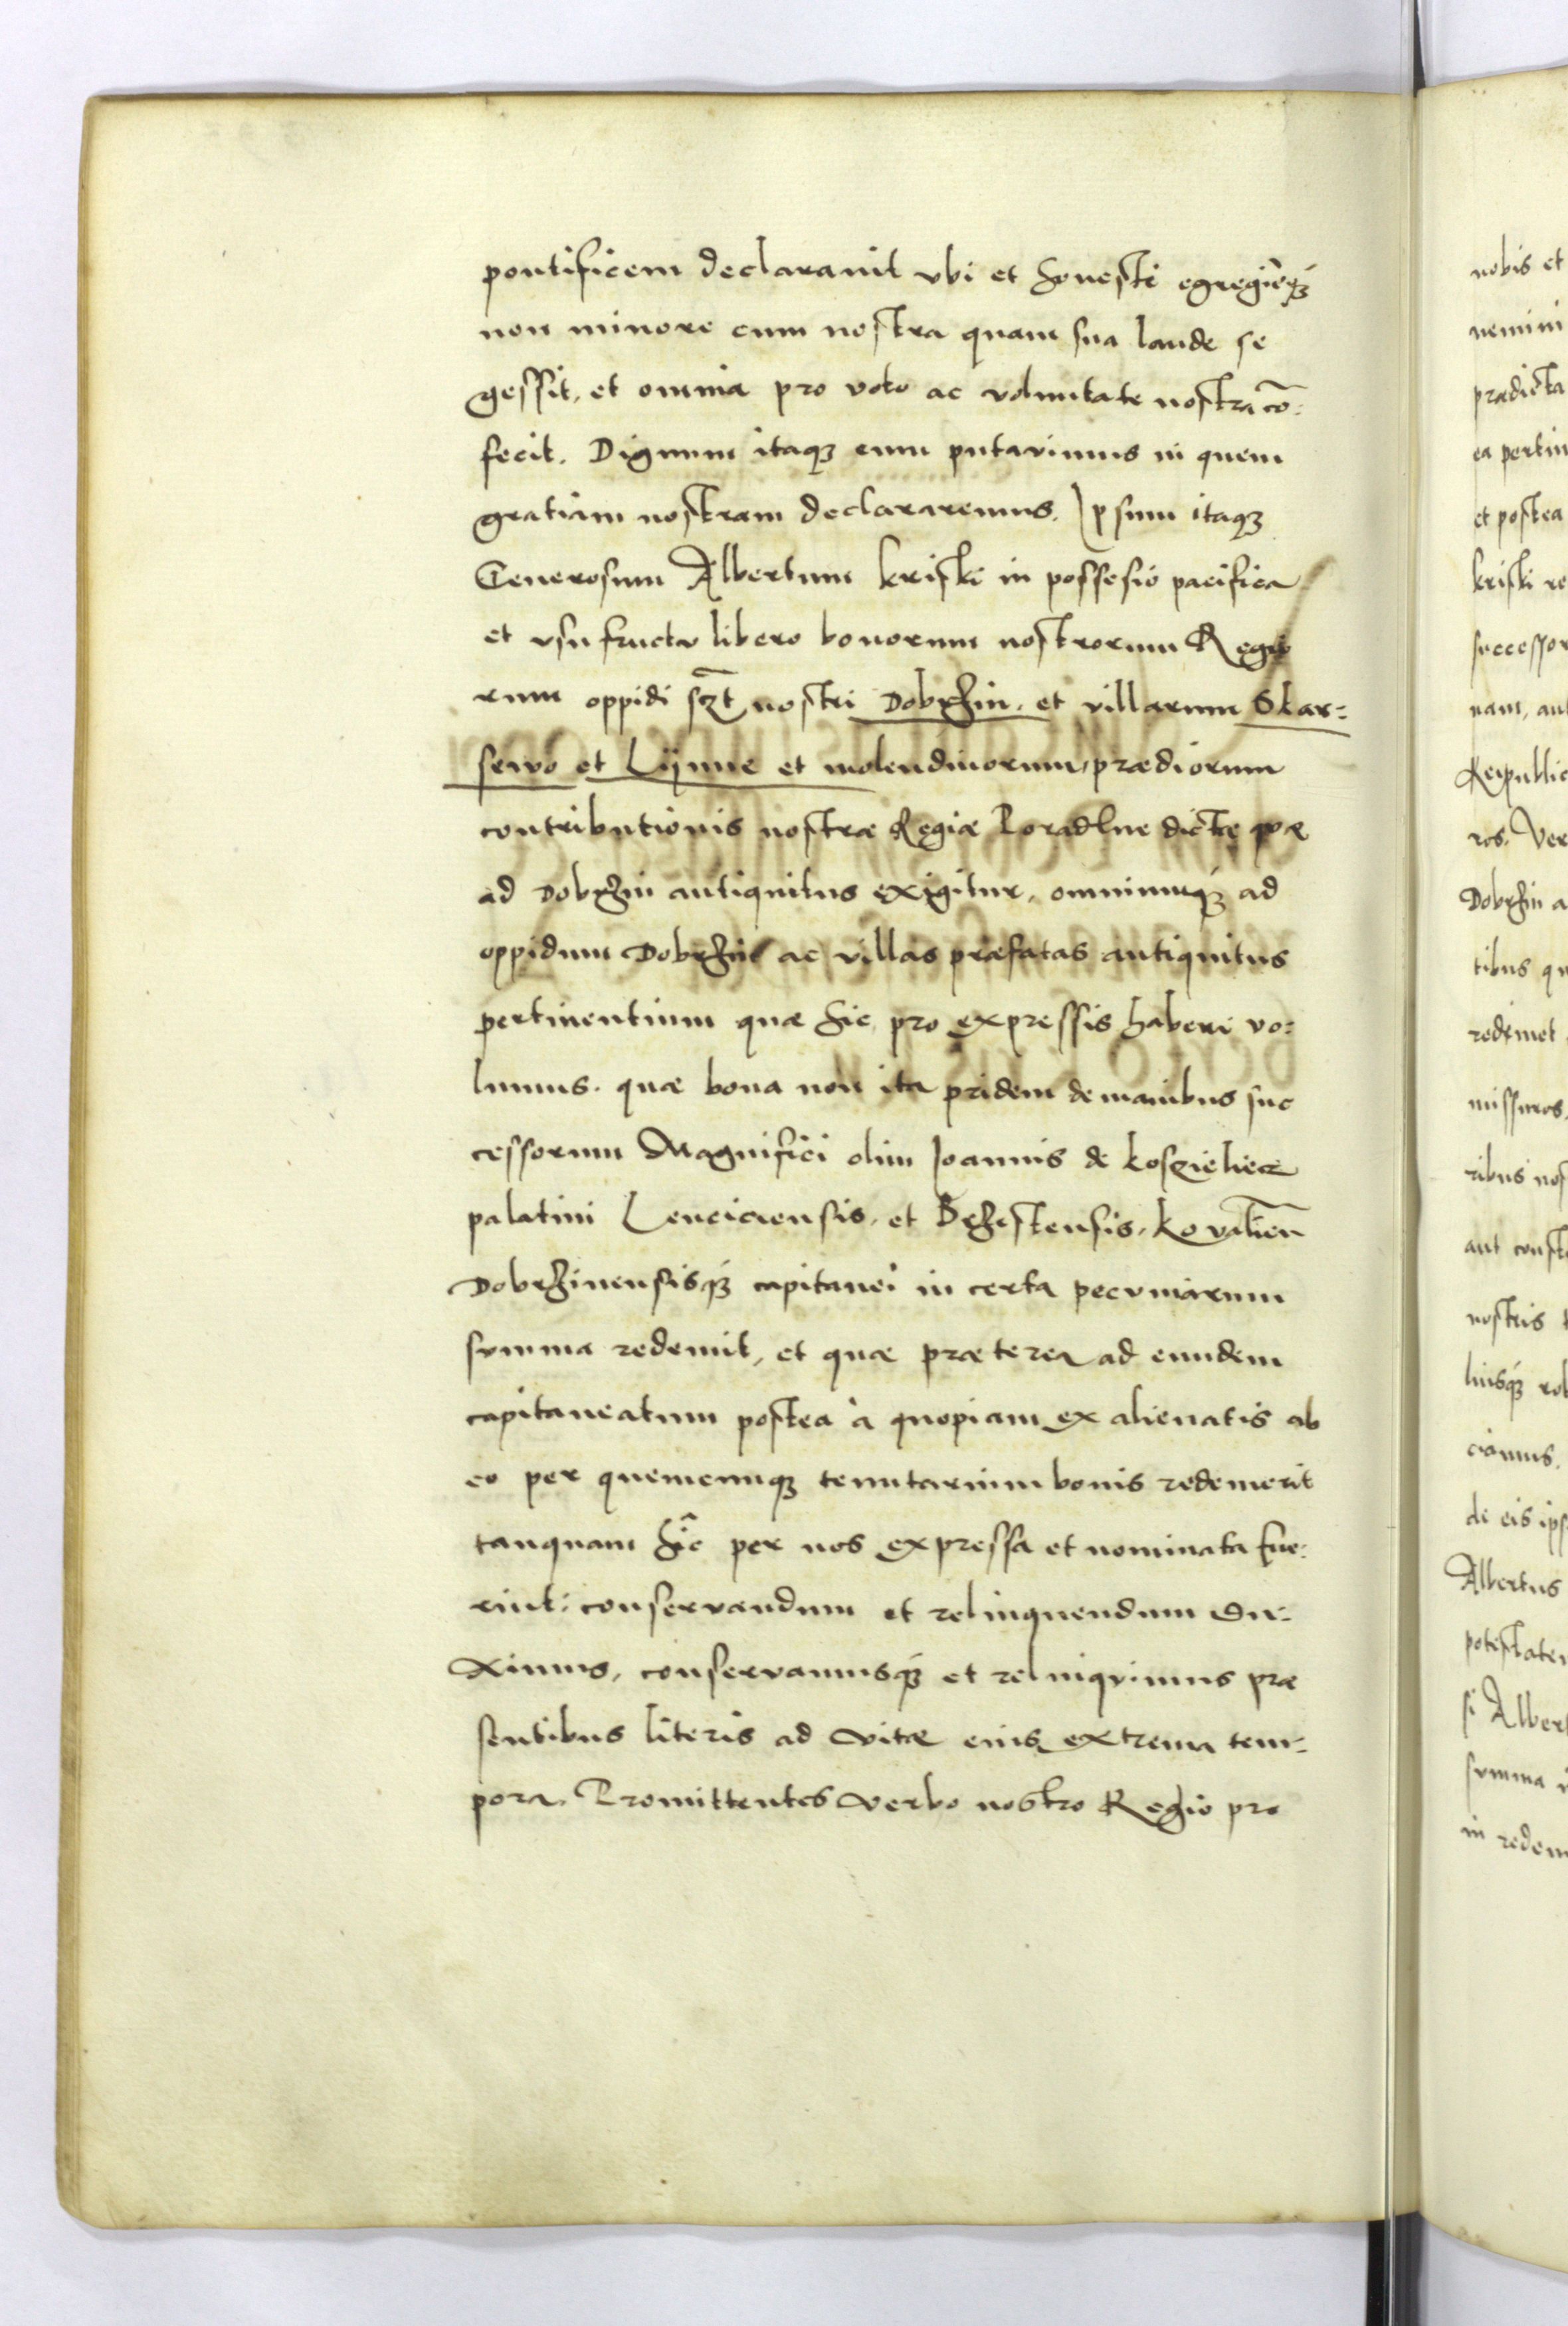 pontificem declaravit vbi et honeste egregieq́ꝫ
non minore cum nostra quam sua laude se
gessit, et omnia pro voto ac voluntate nostra cō:
fecit. Dignum itaqꝫ eum putavimus in quem
gratiam nostram declararemus. Ipsum itaqꝫ
Generosum Albertum kriski in possesio pacifica
et vsufructu libero bonorum nostrorum Regio
rum oppidi sꝫt nostri Dobrzin, et villarum Skar=
sewo et Lÿnne et molendinorum, prædiorum
contributionis nostræ Regiæ Poradlne dictę quæ
ad Dobrzin antiquitus exigitur, omniumq́ꝫ ad
oppidum Dobrzin ac villas præfatas antiquitus
pertinentium quæ hic pro expressis haberi vo=
lumus. quæ bona non ita pridem de manibus suc
cessorum Magnifici olim Joannis de koscielecz
palatini Lenciciensis, et Brzestensis, kovalien̄
Dobrzinensisq́ꝫ capitanei in certa pecuniarum
summa redemit, et quæ præterea ad eundem
capitaneatum postea à quopiam ex alienatis ab
eo per quemcunqꝫ tenutarium bonis redemerit
tanquam hîc per nos expressa et nominata fue=
rint: conservandum et relinquendum du=
ximus, conservamusq́ꝫ et relinquimus præ
sentibus literis ad vitæ eius extrema tem=
pora. Promittentes verbo nostro Regio pro
nobis et
nemini
prædicta
ea pertin
et postea
kriski re
successor
nam, aut
Reipublic
ros. Ver
Dobrzin a
tibus qu
redimet
missuros.
ribus nos
aut const
nostris
liusq́ꝫ rob
ciamus.
de eis ips
Albertus
potestatem
si Albert
summa
in redem